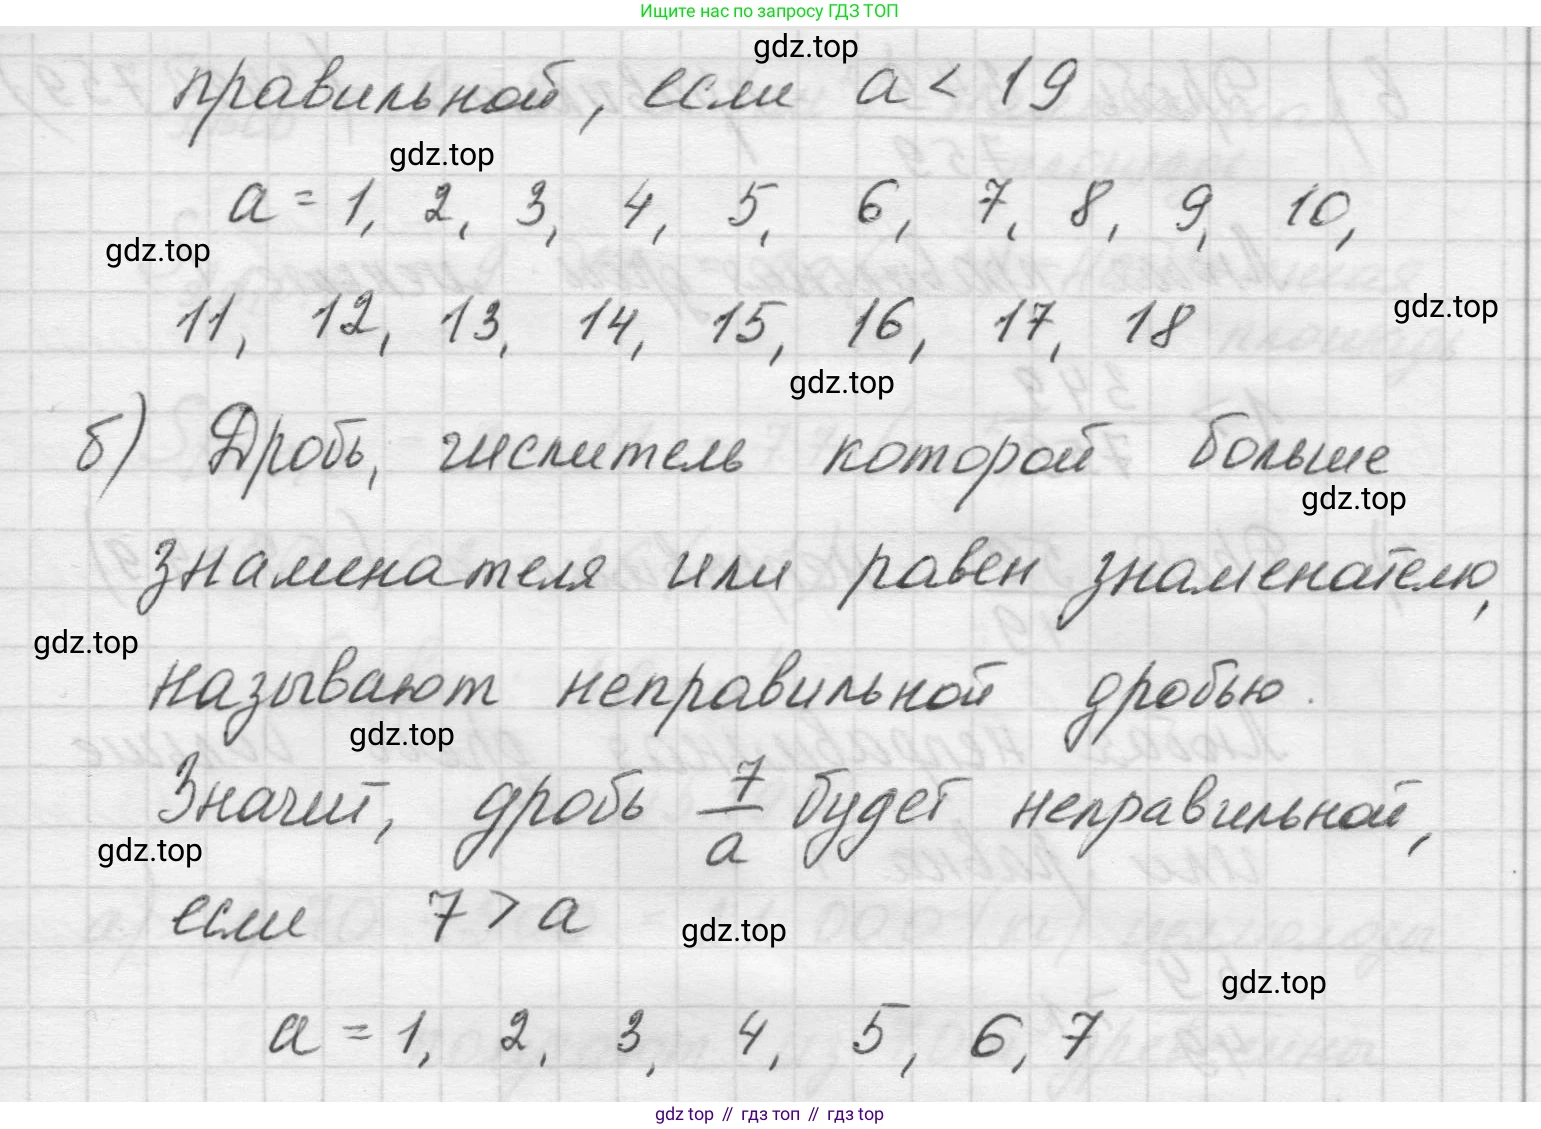 Ищите нас по запросу ГДЗ ТОП
gdz.top
правильной, если a < 19
gdz.top
a = 1, 2, 3, 4, 5, 6, 7, 8, 9, 10,
gdz.top
11, 12, 13, 14, 15, 16, 17, 18
gdz.top
gdz.top
б) Дробь, числитель которой больше
gdz.top
знаменателя или равен знаменателю,
gdz.top
называют неправильной дробью.
gdz.top
Значит, дробь 7/a будет неправильной,
gdz.top
если 7 > a
gdz.top
gdz.top
a = 1, 2, 3, 4, 5, 6, 7
gdz top // гдз топ // gdz top